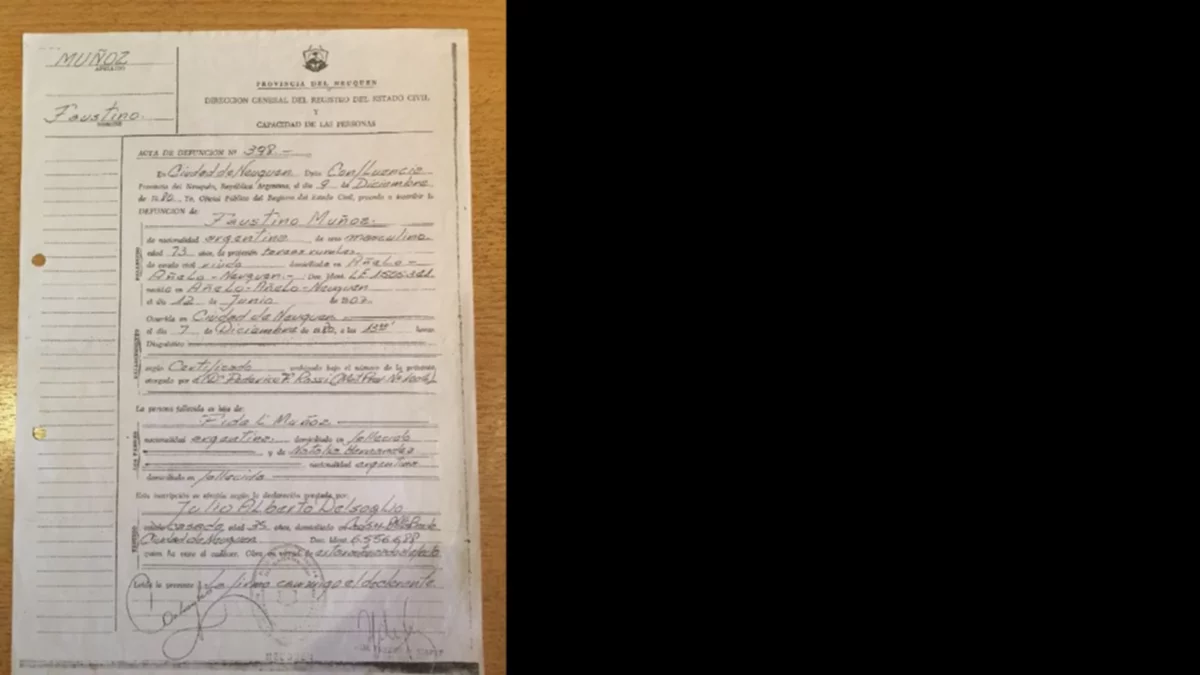 MUÑOZ
APELLIDO
Faustino.
PROVINCIA DEL NEUQUEN
DIRECCION GENERAL DEL REGISTRO DEL ESTADO CIVIL
Y
CAPACIDAD DE LAS PERSONAS
ACTA DE DEFUNCION Nº 398.-
En Ciudad de Neuquen Dpto Confluencia
Provincia del Neuquén, República Argentina, el día 9 de Diciembre
de Yo, Oficial Público del Registro del Estado Civil, procedo a inscribir la
DEFUNCION de:
Faustino Muñoz.
de nacionalidad argentina de sexo masculino.
edad 73 años, de profesión tareas rurales.
de estado civil viudo domiciliado en Añelo-
Añelo-Neuquen.- Doc. Ident. LE
nacido en Añelo-Añelo-Neuquen
el día 12 de Junio de 907
Ocurrida en Ciudad de Neuquen
el día 7 de Diciembre de a las horas
Diagnóstico
según Certificado archivado bajo el número de la presente,
otorgado por el Dr Federico F. Rossi
La persona fallecida es hija de:
Fidel Muñoz
nacionalidad argentina. domiciliado en fallecido
y de Natalia Hernandez
nacionalidad argentina
domiciliada en fallecida
Esta inscripción se efectúa según la declaración prestada por:
Julio Alberto Delsoglio
casado edad 35 años, domiciliado en
Ciudad de Neuquen Doc. Ident. 6.556.688
quien ha visto el cadáver. Obra en virtud de
Leída la presente La firma conmigo el declarante.
NEUQUEN